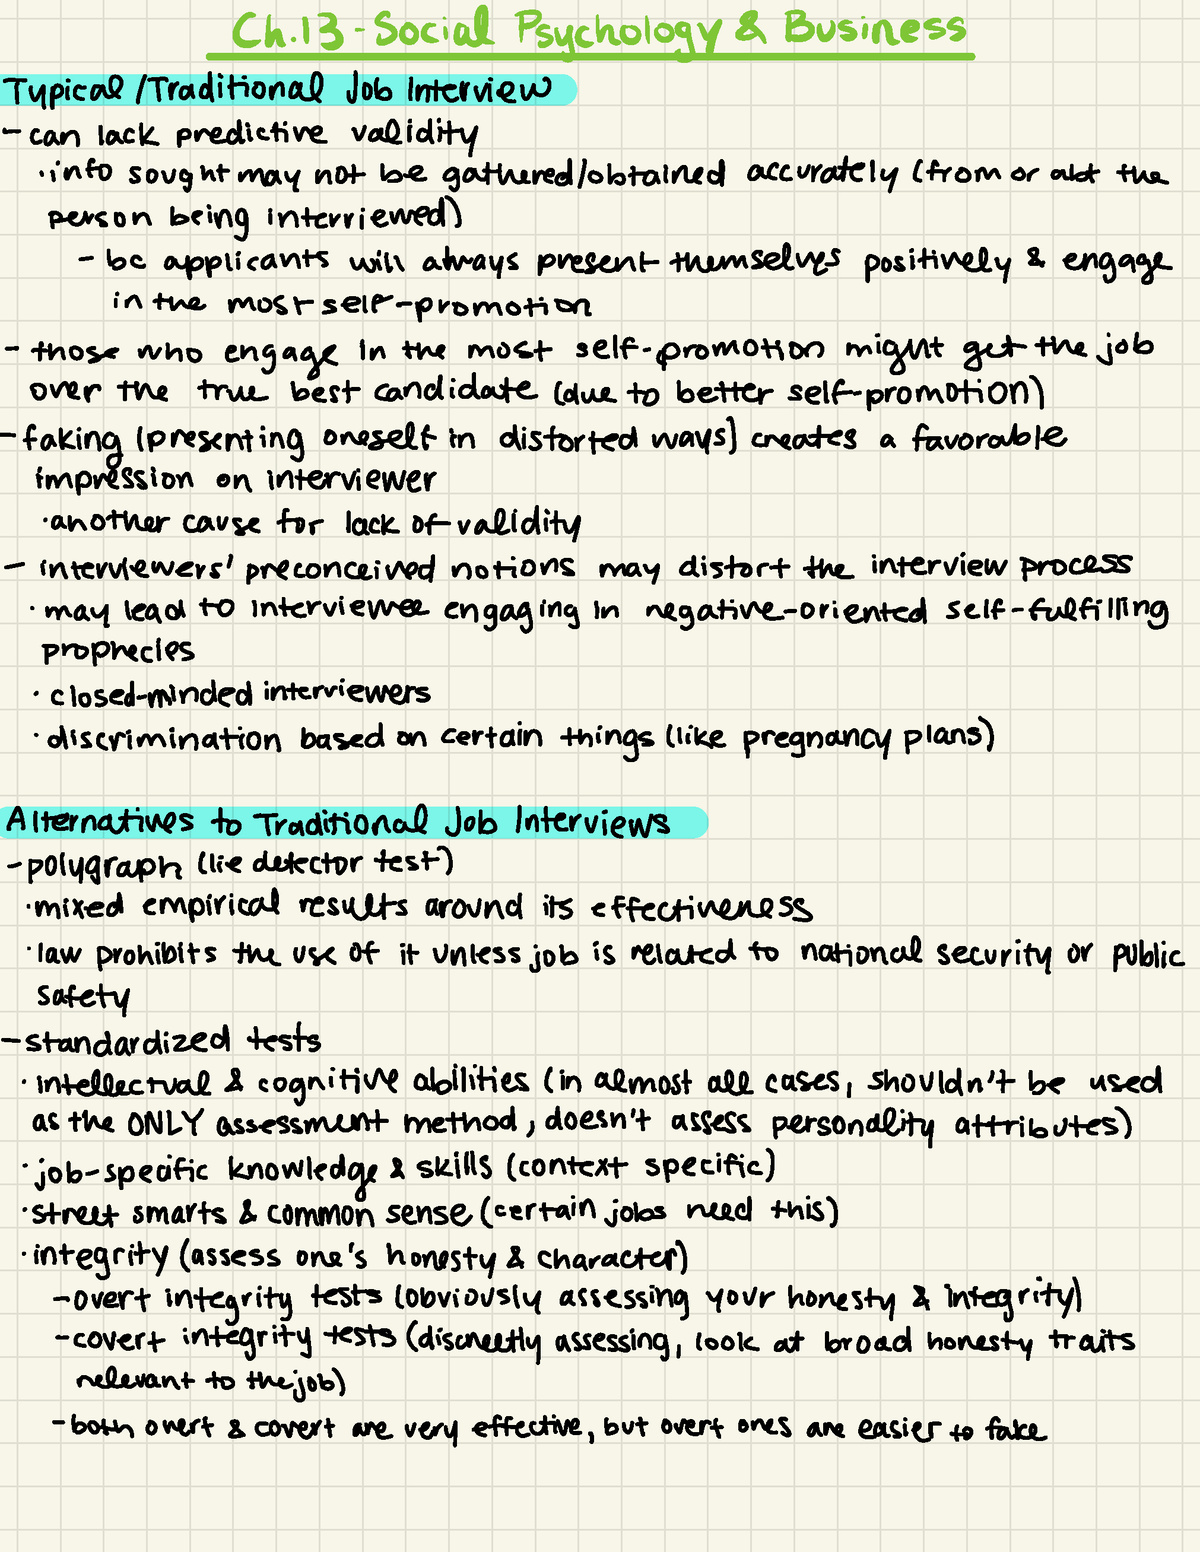 Ch.13 - Social Psychology & Business
Typical/Traditional Job Interview
- can lack predictive validity
· info sought may not be gathered/obtained accurately (from or abt the
person being interviewed)
- bc applicants will always present themselves positively & engage
in the most self-promotion
- those who engage in the most self-promotion might get the job
over the true best candidate (due to better self-promotion)
- faking (presenting oneself in distorted ways) creates a favorable
impression on interviewer
· another cause for lack of validity
- interviewers' preconceived notions may distort the interview process
· may lead to interviewee engaging in negative-oriented self-fulfilling
prophecies
· closed-minded interviewers
· discrimination based on certain things (like pregnancy plans)
Alternatives to Traditional Job Interviews
- polygraph (lie detector test)
· mixed empirical results around its effectiveness
· law prohibits the use of it unless job is related to national security or public
safety
- standardized tests
· intellectual & cognitive abilities (in almost all cases, shouldn't be used
as the ONLY assessment method, doesn't assess personality attributes)
· job-specific knowledge & skills (context specific)
· street smarts & common sense (certain jobs need this)
· integrity (assess one's honesty & character)
- overt integrity tests (obviously assessing your honesty & integrity)
- covert integrity tests (discreetly assessing, look at broad honesty traits
relevant to the job)
- both overt & covert are very effective, but overt ones are easier to fake